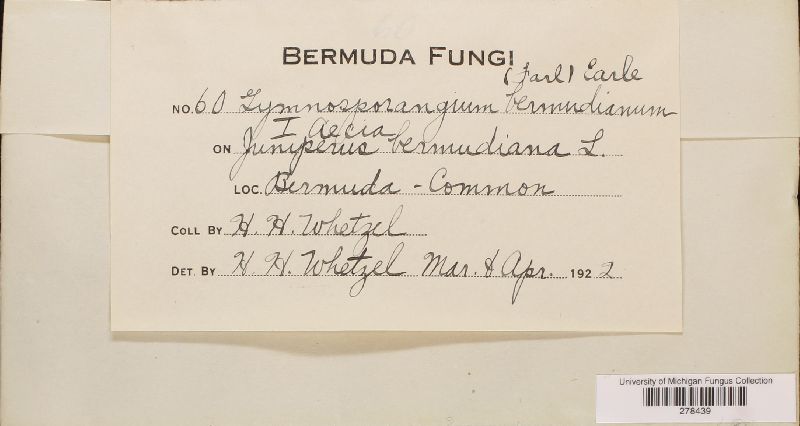 BERMUDA FUNGI
(Farl) Earle
NO. 60 Gymnosporangium bermudianum
I Aecia
ON Juniperus bermudiana L.
LOC. Bermuda - Common
COLL BY H. H. Whetzel
DET. BY H. H. Whetzel Mar. & Apr. 1922
University of Michigan Fungus Collection
278439